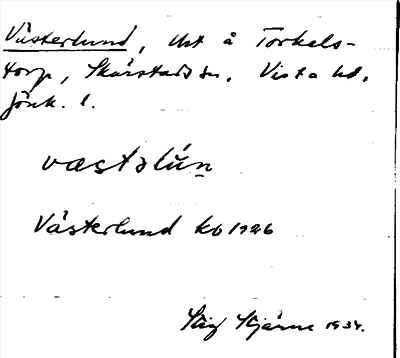 Västerlund, Ut å Torkels-
torp, Skärstads sn. Vista hd.
Jönk. l.
væstəlún
Västerlund kb 1926
Stig Stjärne 1934.